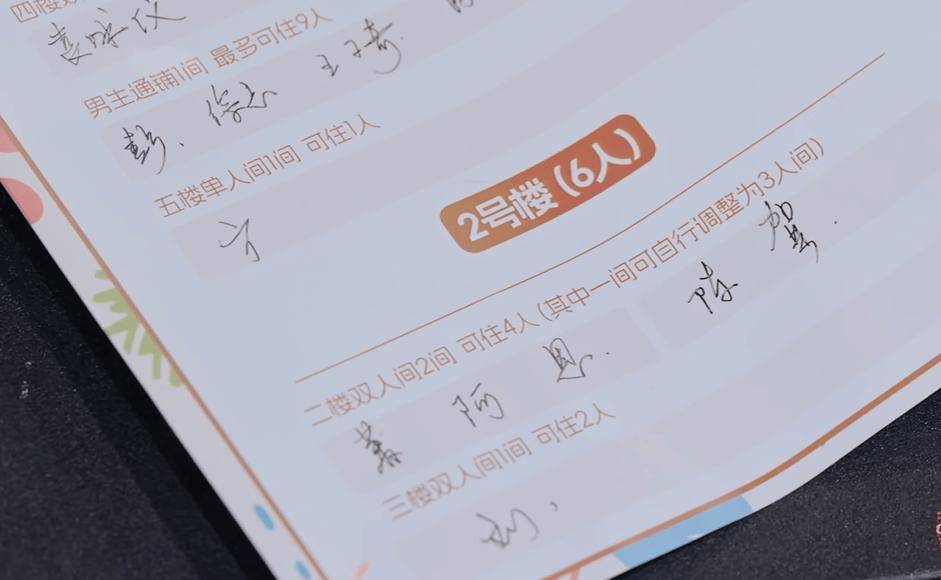 四楼双
袁咏仪
男生通铺1间 最多可住9人
彭、徐志 王子奇
五楼单人间1间 可住1人
宁
2号楼(6人)
二楼双人间2间 可住4人(其中一间可自行调整为3人间)
阿 恩. 陈 贺
三楼双人间1间 可住2人
刘、